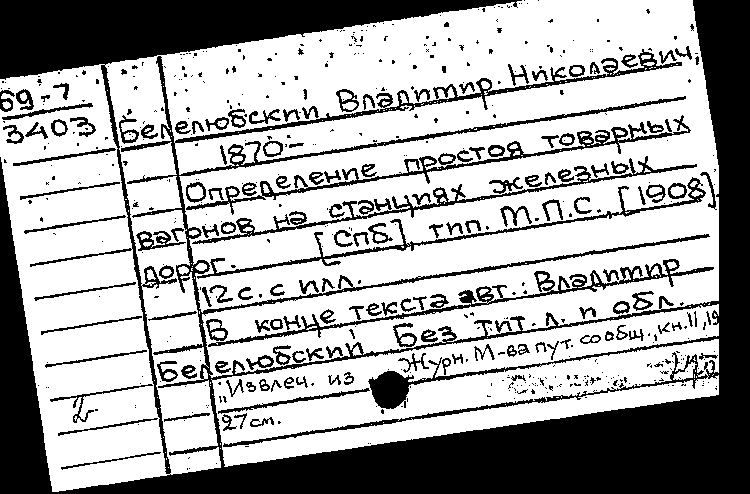 69-7
3403
Белелюбский, Владимир Николаевич,
1870-
Определение простоя товарных
вагонов на станциях железных
дорог. [Спб.], тип. М.П.С., [1908]
12 с. с илл.
В конце текста авт.: Владимир
Белелюбский. Без тит. л. и обл.
"Извлеч. из Журн. М-ва пут. сообщ., кн. II, 19
27 см.
2